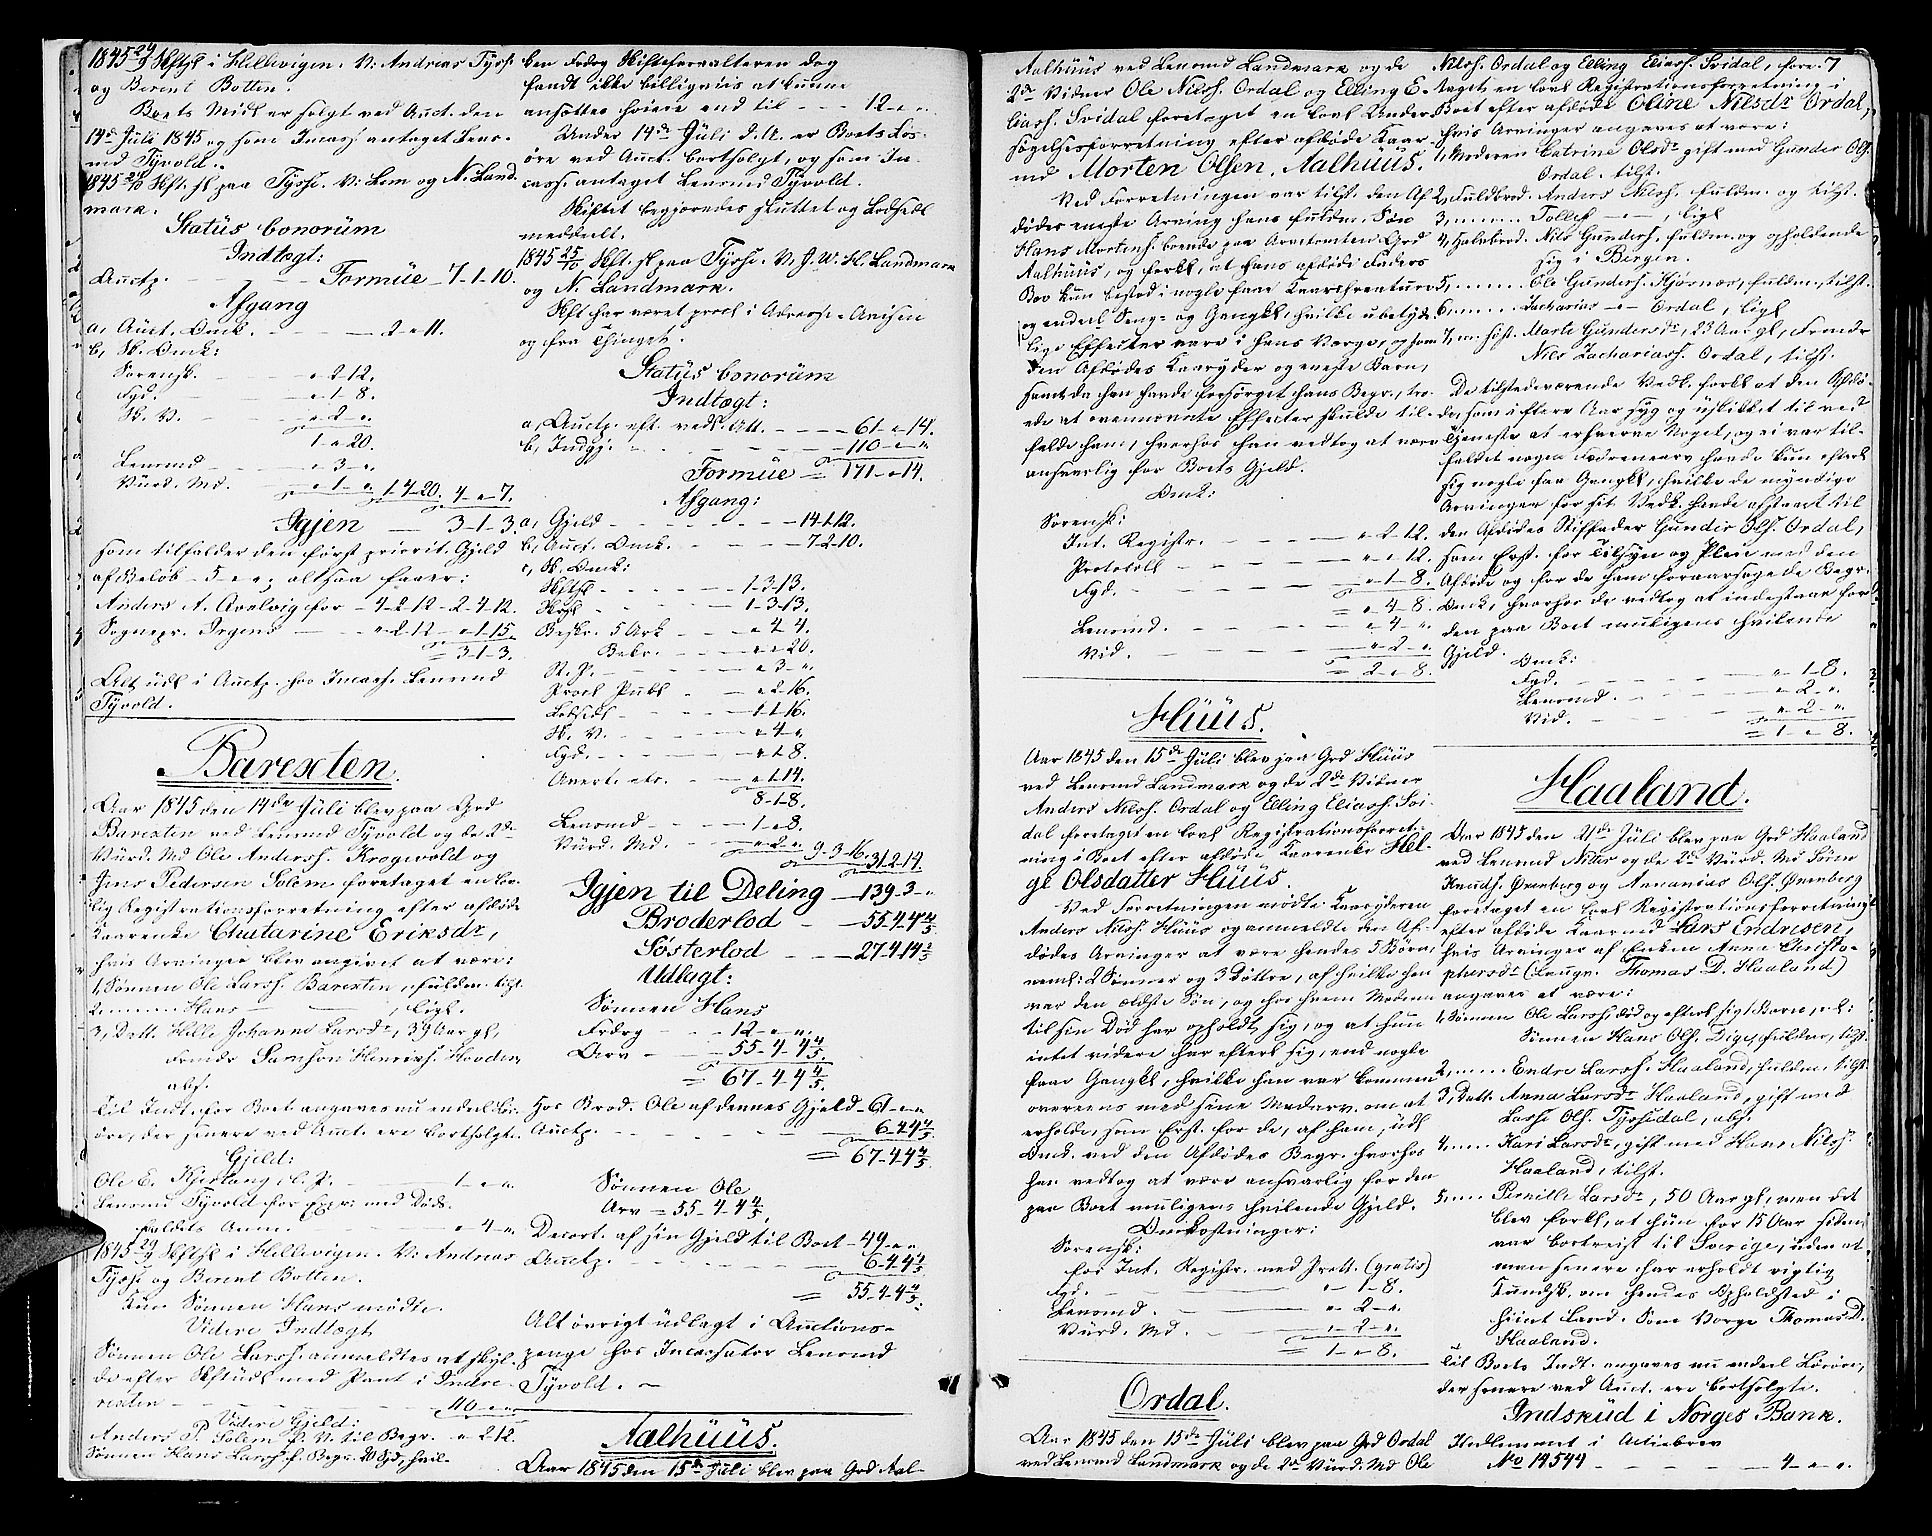 1845 24/9 Skftsl i Hellevigen. V. Andreas Tysse
og Berent Botten.
Boets Midl er solgt ved Auct. den
14de Juli 1845 og som Incass. antaget Lens-
md Tyvold.
1845 24/10 Skft. sl paa Tysse. V. Lem og N. Land-
mark.
Status bonorum
Indtægt:
Auctp. - - - Formue - 7-1-10.
Afgang
a, Auct. Omk. - - - 2 " 11.
b, Sk. Omk:
Sorensk. - - " 2-12.
Fgd. - - " 1-8.
Sk. V. - - " 2-".
1 " 20.
Lensmd - - " 3-".
Vurd. Md. - " 1-". 1-4-20. 4-"-7.
Igjen - 3-1-3.
som tilfalder den først priorit. Gjeld
af Beløb - 5-"-" altsaa faaer:
Anders A. Aselvig for - 4-2-12 - 2-4-12.
Sognepr. Irgens - - " 2-12 - " 1-15.
= 3-1-3.
Alt udl i Auctp. hos Incass. Lensmd
Tyvold.
Barexten.
Aar 1845 den 14de Juli blev paa Grd
Barexten ved Lensmd Tyvold og de 2de
Vurd. Md Ole Anderss. Krogevold og
Jens Pedersen Solem foretaget en lov-
lig Registrationsforretning efter afdøde
Kaarenke Chatarine Eriksdr,
hvis Arvinger blev angivet at være:
1, Sønnen Ole Larss. Barexten, fuldm. tilst.
2, " Hans - " - , ligl.
3, Datt. Hille Johanne Larsdr, 39 Aar gl,
Frmdr Samson Henriks. Hovden,
abs.
Til Indt. for Boet angaves nu endel Løs-
øre, der senere ved Auct. ere bortsolgte.
Gjeld:
Ole E. Kjerlang, l. L. - - 1-"-".
Lensmd Tyvold for Expr. med Døds-
faldets Anm. - - " 4-".
1845 29/9 Skftsl i Hellevigen. V. Andreas
Tysse og Berent Botten.
Kun Sønnen Hans mødte.
Videre Indtægt
Sønnen Ole Larss. anmeldtes at skyl-
de efter Skftudl med Pant i Indre-
rexten - - - 110-"-".
Videre Gjeld:
Anders P. Solem S. V. til Begr. " 2-12.
Sønnen Hans Larss. f. Begr. 20 Spd, hvil-
ken Fordrg Skifteforvalteren dog
fandt ikke billigviis at kunne
ansættes høiere end til - - - 12-"-".
Under 14de Juli d. A. er Boets Løs-
øre ved Auct. bortsolgt, og som In-
cass. antaget Lensmd Tyvold.
Skiftet begjæredes sluttet og Lodsedl
meddeelt.
1845 25/10 Skft. sl paa Tysse. V. J. W. Sl. Landmark
og N. Landmark.
Skft har været procl i Adresse-Avisen
og fra Thinget.
Status bonorum
Indtægt:
a, Auctp. eft. vedl. Att. - - - 61-"-14.
b, Indgj. - - - 110-"-"
Formue = 171-"-14.
Afgang:
a, Gjeld - - - 14-1-12.
b, Auct. Omk. - - - 7-2-10.
c, Sk. Omk:
Skftsl - - 1-3-13.
Skfsl - - 1-3-13.
Beskr. 5 Ark - - " 4-4.
Bekr. - - "-"-20.
St. P. - - " 3-".
Procl Publ - - " 2-16.
Lodsedl - - 1-1-16.
Sk. V. - - " 4-".
Fgd. - - " 1-8.
Avert. etc. - - " 1-14.
8-1-8.
Lensmd - - 1-"-8.
Vurd. Md. - - " 2-". 9-3-16. 31-2-14.
Igjen til Deling - 139-3-"
Broderlod - 55-4-4 4/5
Søsterlod - - 27-4-14 2/5
Udlagt:
Sønnen Hans
Fordrg - - 12-"-".
Arv - - 55-4-4 4/5.
= 67-4-4 4/5.
Hos Brod. Ole af dennes Gjeld - 61-"-"
Auctp. - - - 6-4-4 4/5.
= 67-4-4 4/5.
Sønnen Ole
Arv = 55-4-4 4/5.
Decort. af sin Gjeld til Boet - 49-"-"
Auctp. - - - 6-4-4 4/5
= 55-4-4 4/5.
Alt øvrigt udlagt i Auctions-
penge hos Incassator Lensmd
Tyvold.
Aalhuus.
Aar 1845 den 15de Juli blev paa Grd Aal-
Aalhuus ved Lensmd Landmark og de
2de Vidner Ole Nilss. Ordal og Elling E-
liass. Svidal foretaget en lovl Under-
søgelsesforretning efter afdøde Kaar-
md Morten Olsen Aalhuus.
Ved Forretningen var tilst. den Af-
dødes eneste Arving hans fuldm. Søn
Hans Mortens. boende paa Arvetomten Grd
Aalhuus, og forkl, at hans afdøde Faders
Boe kun bestod i nogle faae Kaarskreature
og endeel Seng- og Gangkl, hvilke ubetyde-
lige Effecter vare i hans Værge, og som
den Afdødes Kaaryder og eneste Barn,
samt da han havde besørget hans Begr., tro-
ede at ovennævnte Effecter skulde til-
falde ham, hvorhos han vedtog at være
ansvarlig for Boets Gjeld.
Omk:
Sorensk:
Int. Registr. - - - " 2-12.
Protokoll - - - "-"-12.
Fgd. - - - " 1-8.
= " 4-8.
Lensmd. - - - " 4-".
Vid. - - - " 2-".
= 2-"-8.
Huus.
Aar 1845 den 15de Juli blev paa Grd Huus
ved Lensmd Landmark og de 2de Vidner
Anders Nilss. Ordal og Elling Eliass. Svi-
dal foretaget en lovl Registrationsforret-
ning i Boet efter afdøde Kaarenke Hel-
ge Olsdatter Huus.
Ved Forretningen mødte Kaaryderen
Anders Nilss. Huus og anmeldte den Af-
dødes Arvinger at være hendes 5 Børn,
neml: 2 Sønner og 3 Døttre, af hvilke han
var den ældste Søn, og hos hvem Moderen
til sin Død har opholdt sig, og at hun
intet videre har efterl sig, end nogle
faae Gangkl, hvilke han var kommen
overeens med sine Medarv. om at
erholde, som Erst. for de, af ham, udl
Omk. ved den Afdødes Begr. hvorhos
han vedtog at være ansvarlig for den
paa Boet muligens hvilende Gjeld.
Omkostninger:
Sorensk:
for Int. Registr. med Prott. (gratis)
Fgd. - - - " 1-8.
Lensmd. - - - " 2-".
Vurd. Md. - - - " 2-".
= 1-"-8.
Ordal.
Aar 1845 den 15de Juli blev paa Grd Ordal
ved Lensmd Landmark og de 2de Vurd. Md Ole
Nilss. Ordal og Elling Eliass. Svidal, fore- 7
taget en lovl Registrationsforretning i
Boet efter afdøde Oline Nilsdr Ordal,
hvis Arvinger angaves at være:
1, Moderen Catrine Olsdr gift med Gunder Ols.
Ordal, tilst.
2, Fuldbrod. Anders Nilss. fuldm. og tilst.
3, " Tollef - " - , ligl
4, Halvbrod. Nils Gunders., fuldm. og opholdende
sig i Bergen.
5, " Ole Gunders. Hjørnes, fuldm., tilst.
6, " Zacharias - " - Ordal, ligl
7, " søst. Marte Gundersdr, 23 Aar gl, Frmdr
Nils Zachariass. Ordal, tilst.
De tilstedeværende Vedk. forkl at den Afdø-
de, som i flere Aar syg og uskikket til ved
Tjeneste at erhverve Noget, og ei var til-
faldet nogen Fædrenearv havde kun efterl
sig nogle faa Gangkl, hvilke de myndige
Arvinger for sit Vedk. havde afstaaet til
den Afdødes Stiffader Gunder Ols. Ordal,
som Erst. for Tilsyn og Pleie med den
Afdøde og for de ham foraarsagede Begr.
Omk, hvorhos de vedtog at indestaae for
den paa Boet muligens hvilende
Gjeld.
Omk:
Fgd. - - - " 1-8.
Lensmd. - - - " 2-".
Vid. - - - " 2-".
= 1-"-8.
Haaland.
Aar 1845 den 21de Juli blev paa Grd Haaland
ved Lensmd Nitter og de 2de Vurd. Md Søren
Knuds. Ørenberg og Annanias Ols. Ørenberg
foretaget en lovl Registrationsforretning
efter afdøde Kaarmd Lars Endresen,
hvis Arvinger af Enken Anna Christo-
phersdr (Laugv. Thomas D. Haaland)
angaves at være:
1, Sønnen Ole Larss. død og efterl sig 1 Barn, nl:
Sønnen Hans Ols. Dige, fuldm., tilst.
2, " Endre Larss. Haaland, fuldm, tilst.
3, Datt. Anna Larsdr Haaland, gift med
Lasse Ols. Tyssedal, abs.
4, " Kari Larsdr, gift med Hans Nilss.
Haaland, tilst.
5, " Pernille Larsdr, 50 Aar gl, men det
blev forkl, at hun for 15 Aar siden
var bortreist til Sverige, uden at
man senere har erholdt rigtig
Kundsk. om hendes Opholdsted i
hiint Land. Som Værge Thomas D.
Haaland.
Til Boets Indt. angaves nu endeel Løsøre,
der senere ved Auct. ere bortsolgte.
Indskud i Norges Bank.
Indlemmet i Actiebrev
No 14544 - - - - 4-"-".